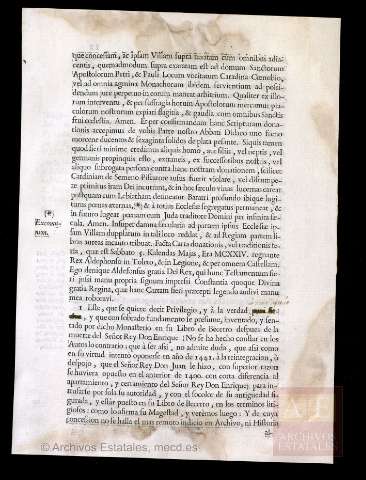 que concessam, ac ipsam Villam supra taxatam cum omnibus adia-
centis, quemadmodum supra exaratum est ad domum Sanctorum
Apostolorum Petri, & Pauli Locum vocitatum Caradina Cœnobio,
vel ad omnia agmina Monachorum ibidem servientium ad possi-
dendum jure perpetuo in contra maneat arbitrium. Qualiter ex illo-
rum interventu, & per suffragia horum Apostolorum mereamur pia-
culorum nostrorum expiari flagitia, & gaudia cum omnibus Sanctis
frui ecclestia. Amen. Et pro confirmandam hanc Scripturam dona-
tionis accepimus de vobis Patre nostro Abbati Didaco uno
morcene ducentos & sexaginta solidos de plata pesante. Siquis tamen
quod fieri minime credimus aliquis homo, aut filiis, vel neptis, vel
germanis propinquis esto, extraneis, ex successoribus nostris, vel
aliquo subrogata persona contra hanc nostram donationem, scilicet
Cardiniam de Semeno Pisuarez voluerit violare, vel disrumpe-
re primitus iram Dei incurrat, & in hoc sæculo vivus lucernas careat
postquam cum Lebirtham demoneat Baratri profundo ibique lugi-
turus penas æternas, (*) & à totius Ecclesiæ segregatus permaneat, &
in futuro lugeat pœnam cum Juda traditore Domini per infinita sæ-
cula, Amen. Insuper damna sæcularia ad partem ipsius Ecclesiæ ip-
sam Villam dupplatam in tali loco reddat, & ad Regiam partem li-
bras aureas in cauto tribuat. Facta Carta donationis, vel traditionis fe-
ria, quæ est Sabbato 5. Kalendas Majas, Era MCXXIV. regnante
Rex Aldephonso in Toleto, & in Legione, & per omnem Castellam.
Ego denique Aldefonsus gratia Dei Rex, qui hunc Testamentum fie-
ri jussi manu propria signum impressi Constantia quoque Divina
gratia Regina, quæ hanc Cartam fieri præcepi legendo audivi manu
mea roboravi.
(*)
Excomu-
nion.
1 Este, que se quiere decir Privilegio, y à la verdad
, y que con sobrado fundamento se presume, invenendo, y sen-
tado por dicho Monasterio en su Libro de Becerro despues de la
muerte del Señor Rey Don Enrique: ¿No se ha hecho constar en los
Autos lo contrario; que à ser assi, no admite duda, que assi como
en su virtud intento oponerse en año de 1441. à la reintegracion, ò
despojo, que el Señor Rey Don Juan le hizo, con superior razon
se huviera opuesto en el anterior de 1400. con corta diferencia al
apartamiento, y cerramiento del Señor Rey Don Enrique; para in-
titularse por sola su autoridad, y con el socolor de su antiguedad si-
gurada, y estàr puesto en su Libro de Becerro, en los terminos liti-
giosos; como lo afirma su Magestad, y verèmos luego: Y de cuya
concession no se halla el mas remoto indicio en Archivo, ni Historia
© Archivos Estatales, mecd.es
ARCHIVOS
ESTATALES